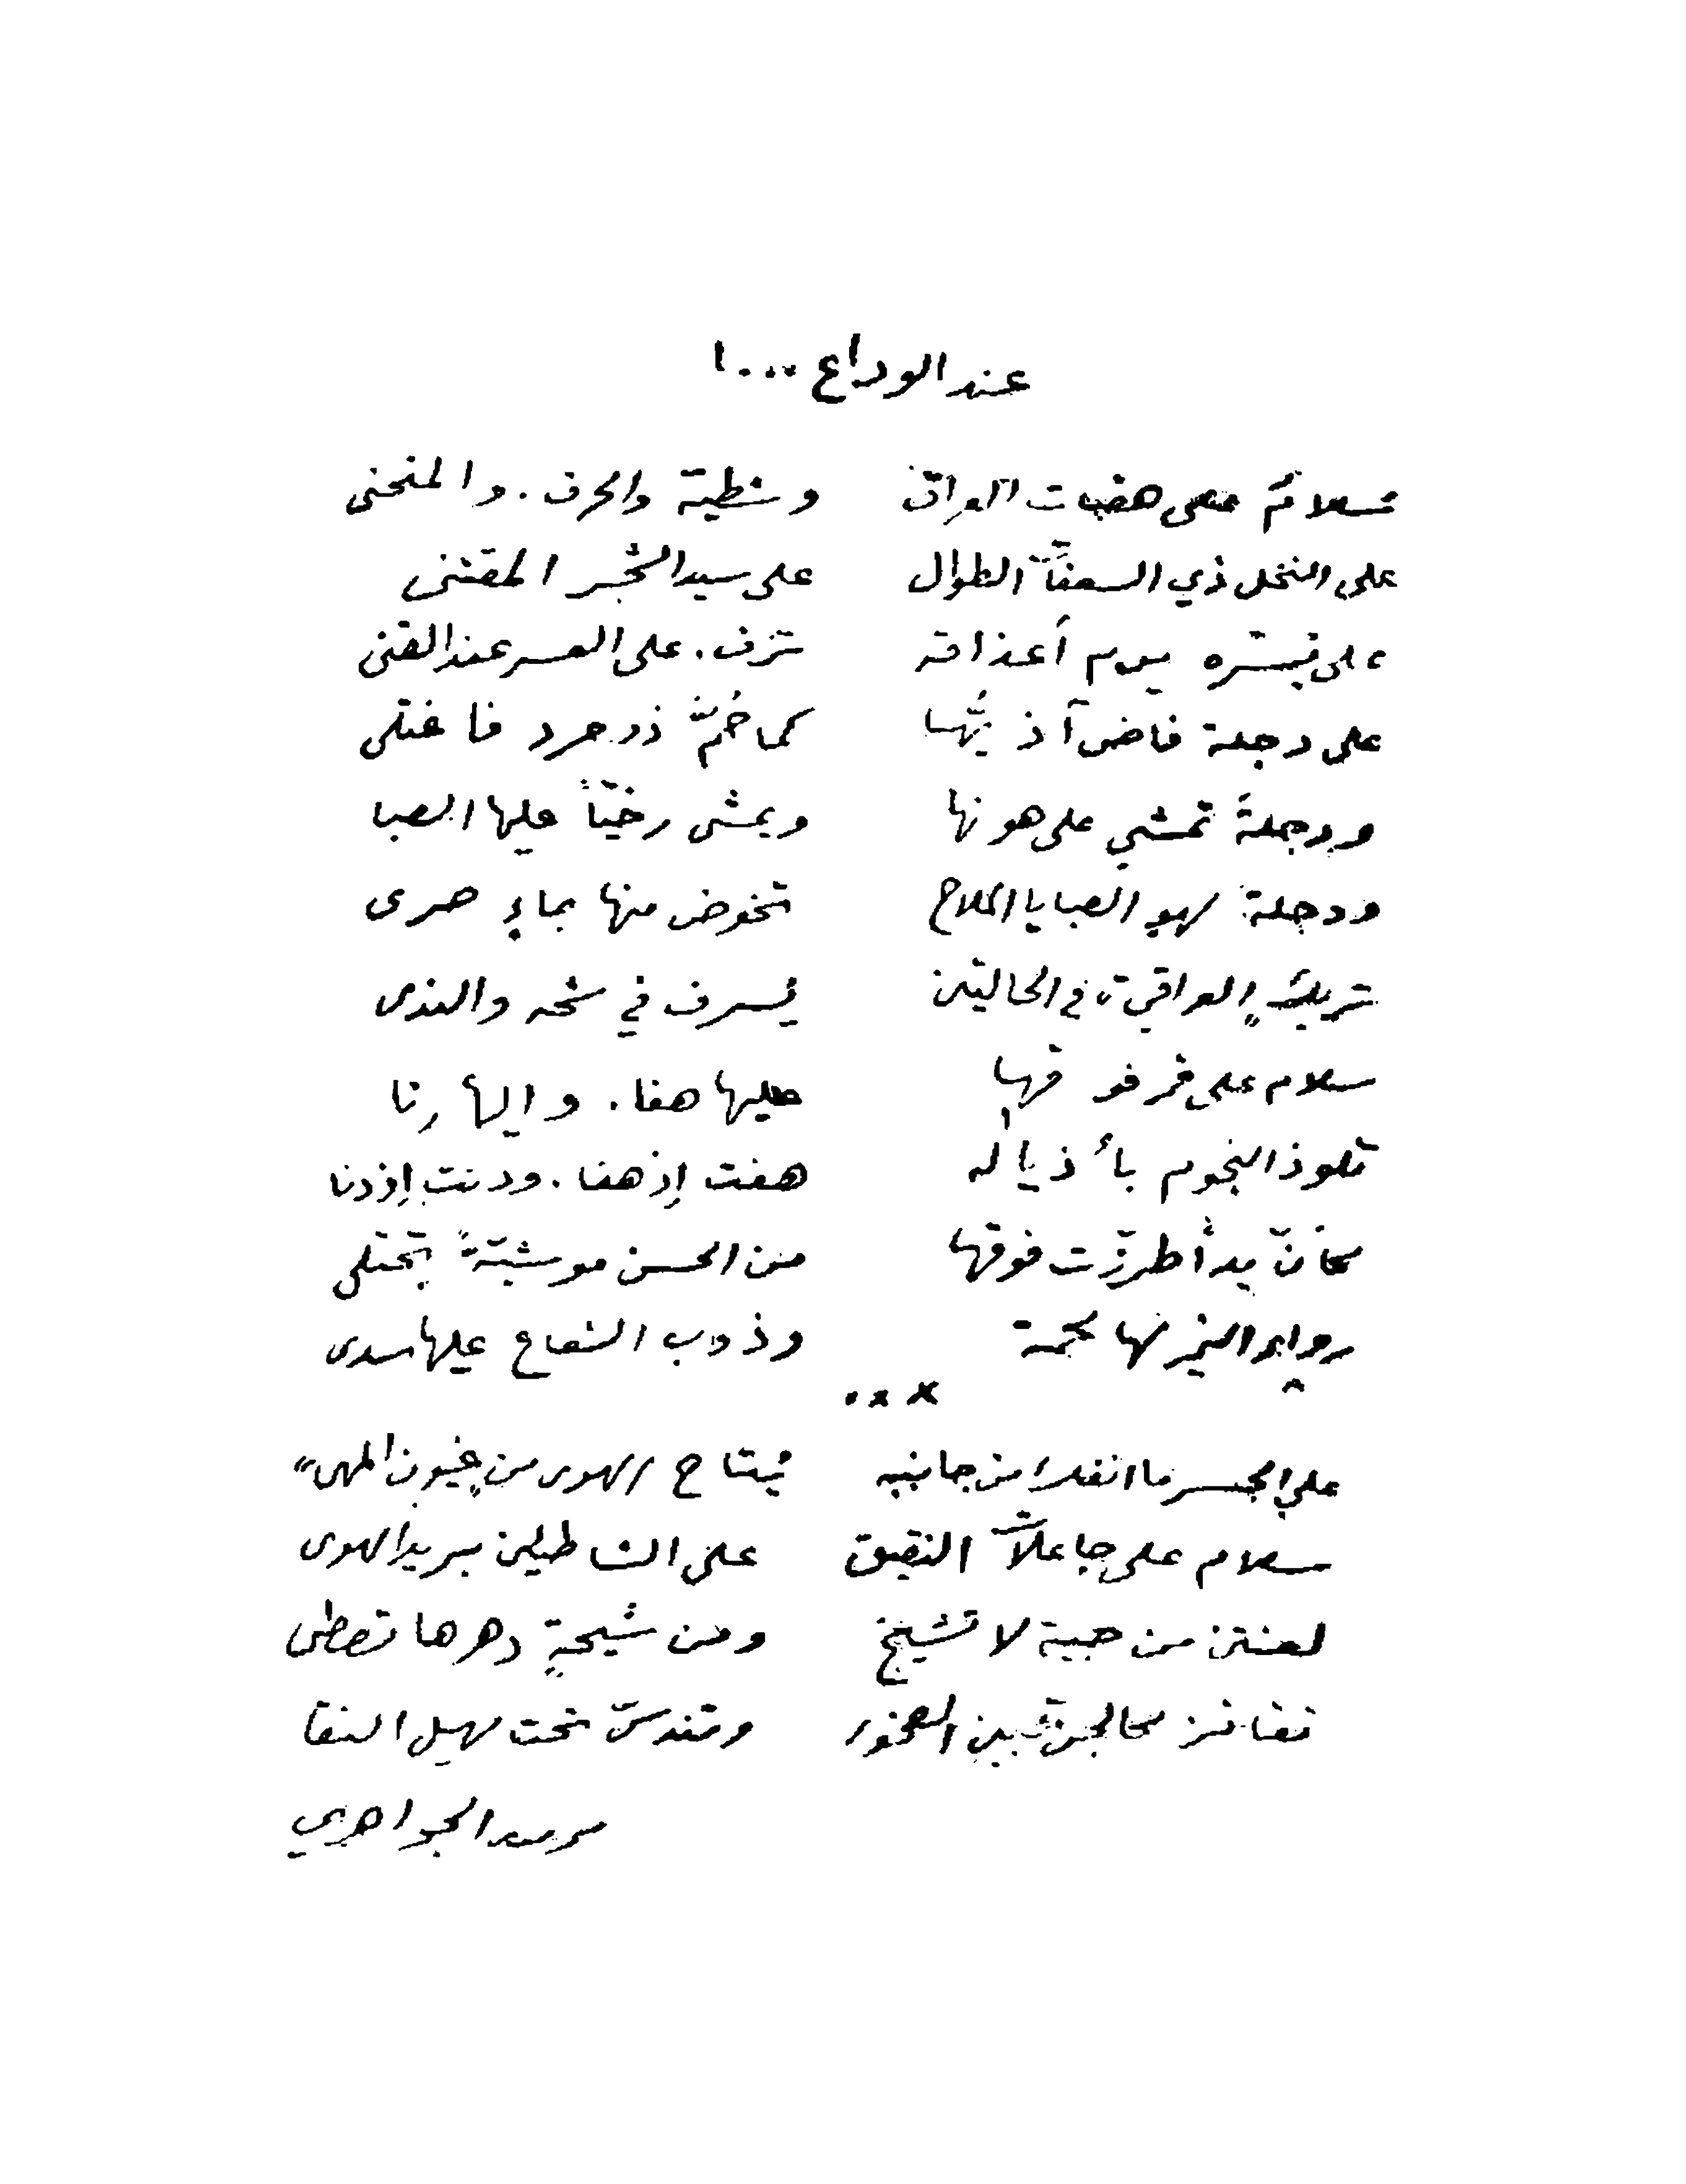 عند الوداع ...!
سلامٌ على هضبات العراق وشطيه والجرف . والمنحنى
على النخل ذي السعفات الطوال على سيد الشجر المقتنى
على يوم أعذاقه تزف . على العسر عند القنى
على دجلة فاض آذيّها كما حُمّ ذو حرد فاغتلى
ودجلةَ تمشي على هونها ويمشي رخيّاً عليها الصبا
ودجلة لهو الصبايا الملاح تخوض منها بماءٍ صرى
تريك العراقيّ في الحالتين يُسرف في شحه والندى
سلام على قمر فوقها عليها هفا . وإليها رنا
تلوذ النجوم بأذياله هفت إذ هفا . ودنت إذ دنا
كأنّ يداً طرزت فوقها من الحسن موشيّةً تجتلى
رواء النمير لها لحمة وذوب الشعاع عليها سدى
× × .
على الجسر ما انفك من جانبيه يُتاح الهوى من عيون المها"
سلام على جاعلات النقيق على الشاطئين بريد الهوى
لعنتن من صبية لا تشيخ ومن شيخةٍ دهرها تصطبى
تقافز كالجن بين الصخور وتندسّ تحت مهيل النقا
الجواهري